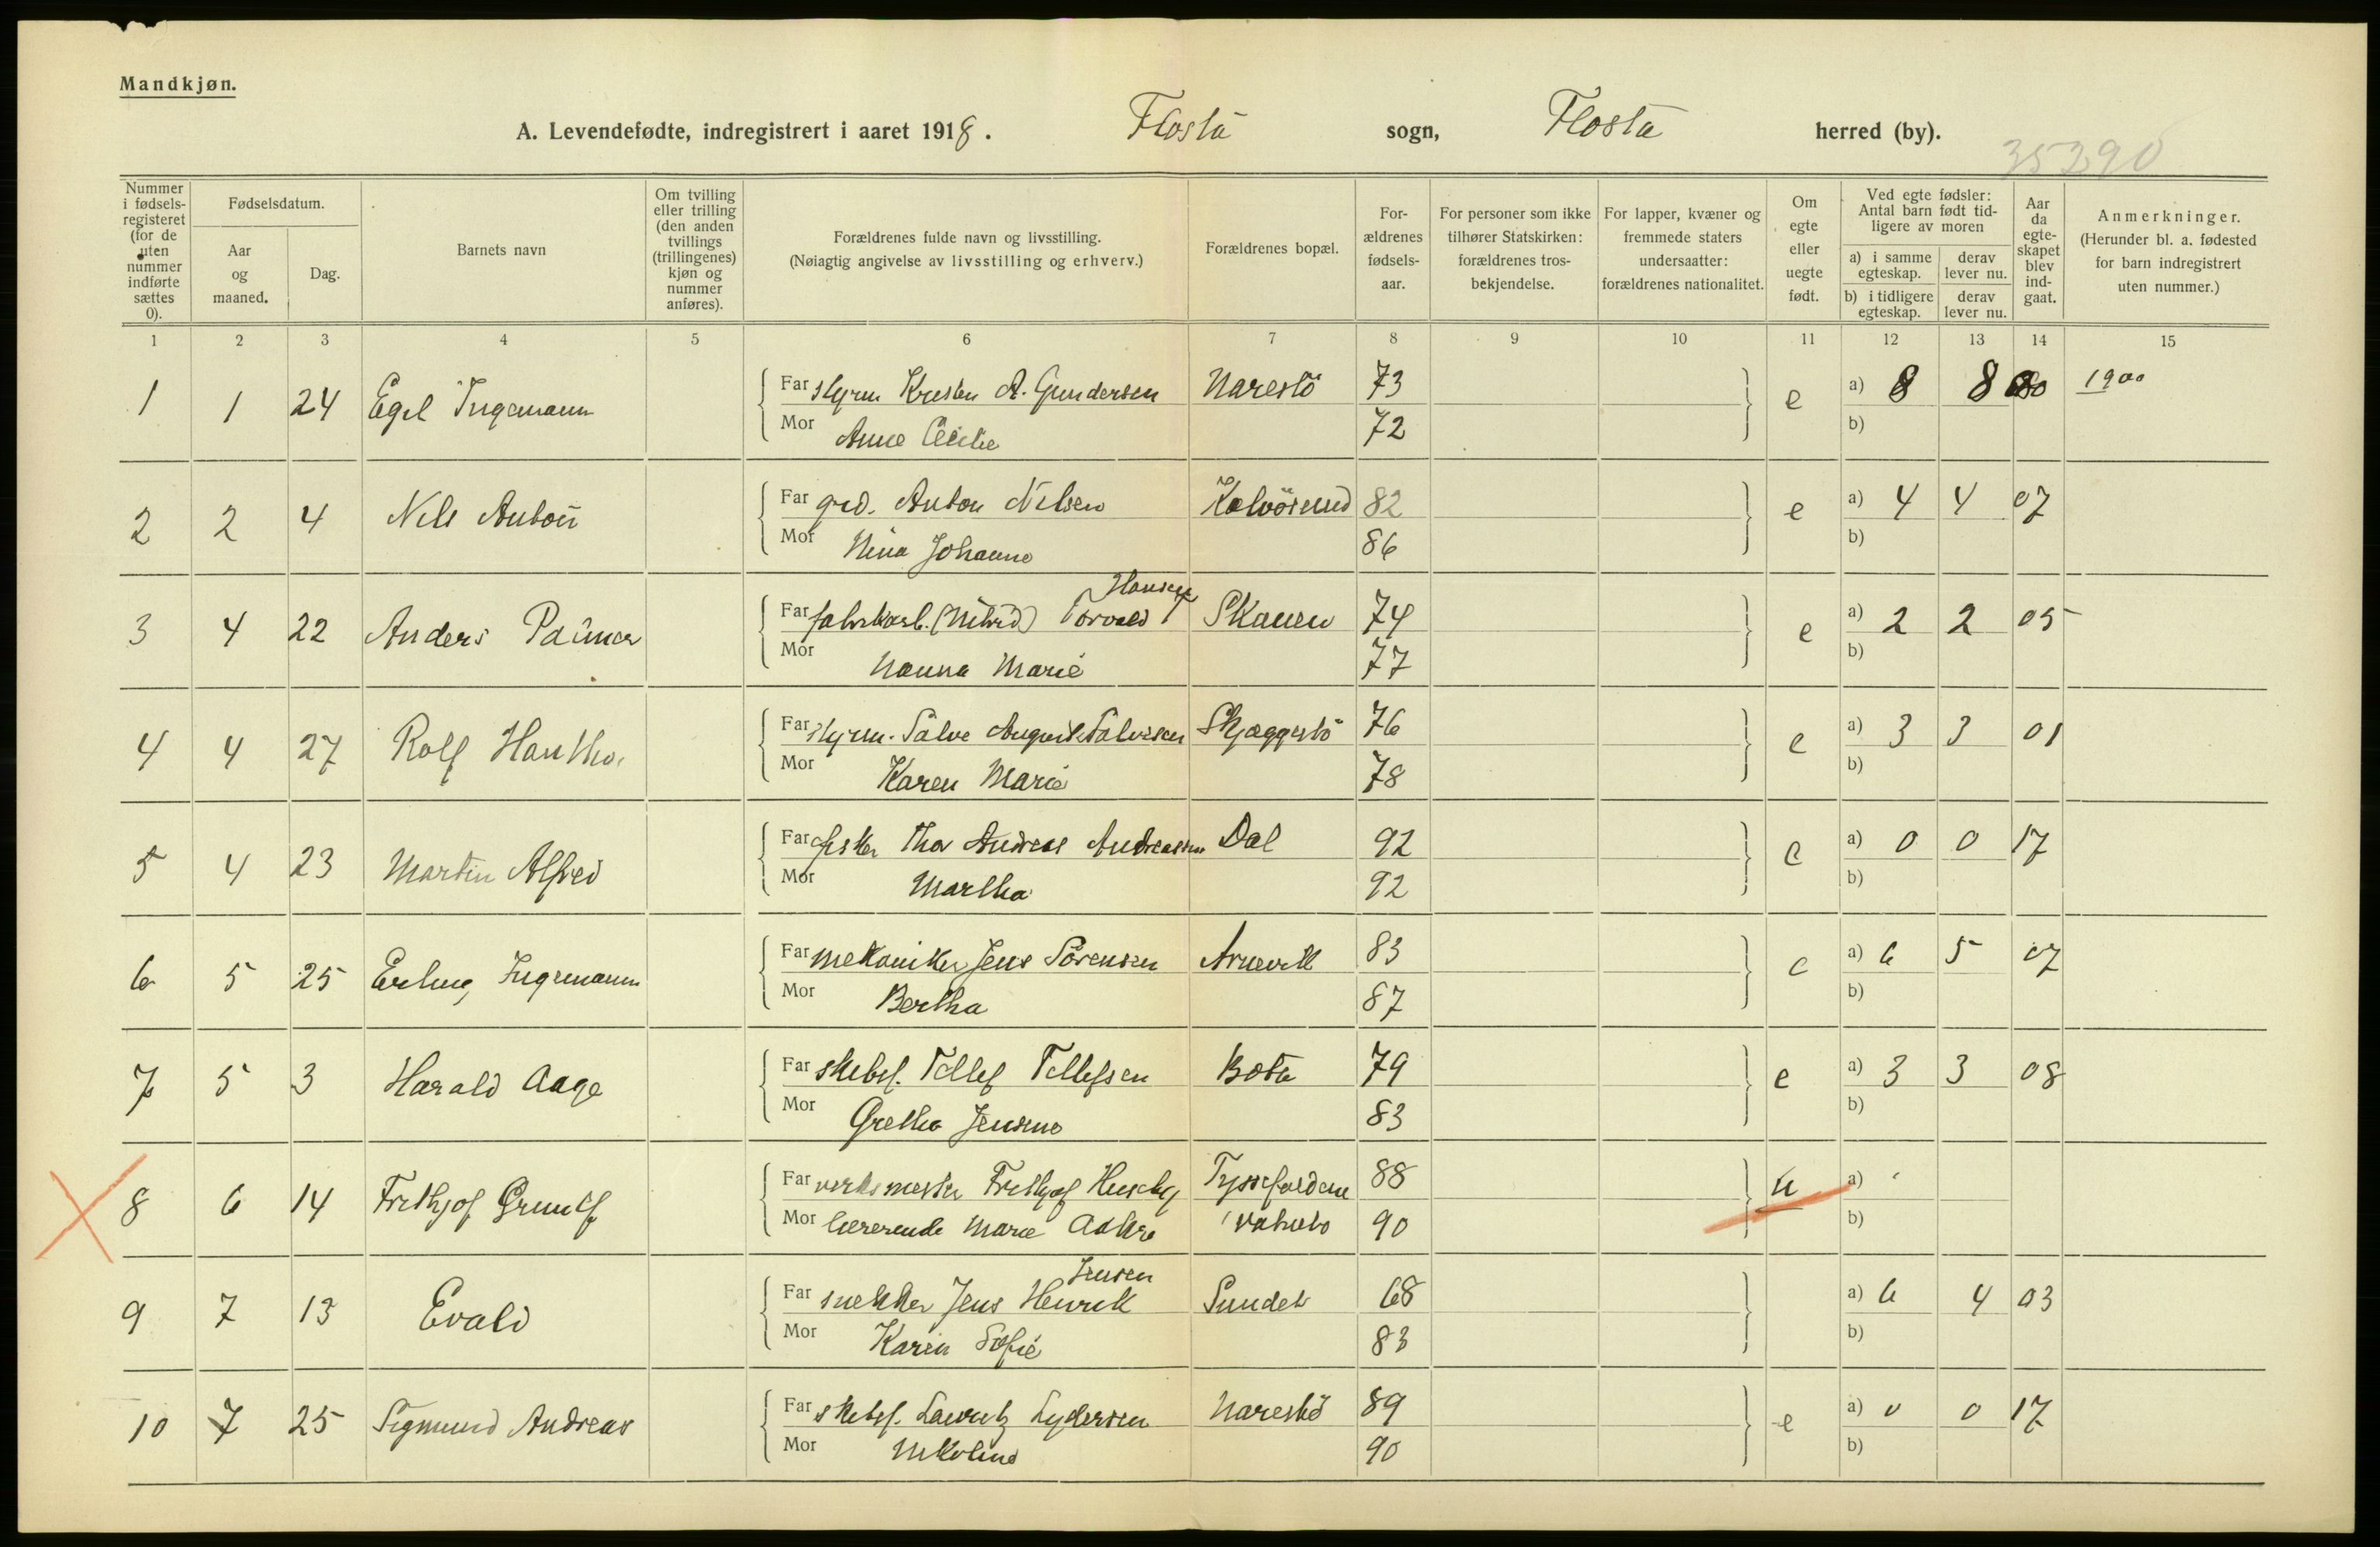 Mandkjøn.
A. Levendefødte, indregistrert i aaret 1918. Flosta sogn, Flosta herred (by).
35290
Nummer i fødsels-registeret (for de uten nummer indførte sættes 0).
Fødselsdatum.
Aar og maaned.
Dag.
Barnets navn
Om tvilling eller trilling (den anden tvillings (trillingenes) kjøn og nummer anføres).
Forældrenes fulde navn og livsstilling.
(Nøiagtig angivelse av livsstilling og erhverv.)
Forældrenes bopæl.
For-ældrenes fødsels-aar.
For personer som ikke tilhører Statskirken: forældrenes tros-bekjendelse.
For lapper, kvæner og fremmede staters undersaatter: forældrenes nationalitet.
Om egte eller uegte født.
Ved egte fødsler: Antal barn født tid-ligere av moren
a) i samme egteskap.
derav lever nu.
b) i tidligere egteskap.
derav lever nu.
Aar da egte-skapet blev ind-gaat.
Anmerkninger.
(Herunder bl. a. fødested for barn indregistrert uten nummer.)
1 2 3 4 5 6 7 8 9 10 11 12 13 14 15
1 1 24 Egil Ingemann Far styrm Kristen A. Gundersen Narestö 73 e a) 8 8 00 1900
Mor Anne Cecilie 72 b)
2 2 4 Nils Anton Far grd. Anton Nilsen Kalvösund 82 e a) 4 4 07
Mor Nina Johanne 86 b)
Hansen
3 4 22 Anders Palmer Far fabrikarb. Torvald Skauen 74 e a) 2 2 05
Mor Nanna Marie 77 b)
4 4 27 Rolf Far styrm. Salve August Salvesen Skjaggestö 76 e a) 3 3 01
Mor Karen Marie 78 b)
5 4 23 Martin Alfred Far fisker Thor Andreas Andreassen Dal 92 e a) 0 0 17
Mor Martha 92 b)
6 5 25 Erling Ingemann Far mekaniker Jens Sörensen Arnevik 83 e a) 6 5 07
Mor Bertha 87 b)
7 5 3 Harald Aage Far skibsf. Tellef Tellefsen Bota 79 e a) 3 3 08
Mor Grethe Jensine 83 b)
8 6 14 Frithjof Far verksmester Frithjof Tyssefaldene 88 u a)
Mor lærerinde Marie Aakre 90 b)
Jensen
9 7 13 Evald Far snekker Jens Henrik Sundet 68 a) 6 4 03
Mor Karen Sofie 83 b)
10 7 25 Sigmund Andreas Far skibsf. Lauritz Lydersen Narestö 89 e a) 0 0 17
Mor Nikoline 90 b)